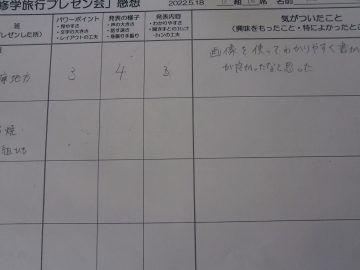 修学旅行プレゼン会」感想
2022.5.18
組
席
名前
パワーポイント
・見やすさ
・文字の大きさ
・レイアウトの工夫
発表の様子
・声の大きさ
・話す速さ
・身振り手振り
発表内容
・わかりやすさ
・聞き手とのクション
ションの工夫
気がついたこと
(興味をもったこと・特によかったところ
プレゼンした所)
地方
3
4
3
画像を使ってわかりやすく
が良かったなと思った